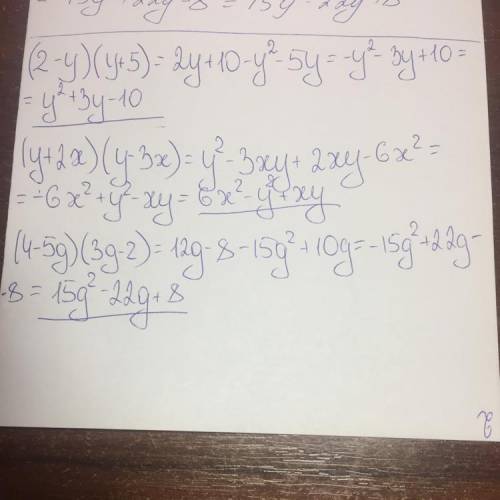 (2-y)(y+5) = 2y+10-y²-5y = -y²-3y+10 =
= y²+3y-10
(y+2x)(y-3x) = y²-3xy+2xy-6x² =
= -6x²+y²-xy = 6x²-y²+xy
(4-5g)(3g-2) = 12g-8-15g²+10g = -15g²+22g-
-8 = 15g²-22g+8